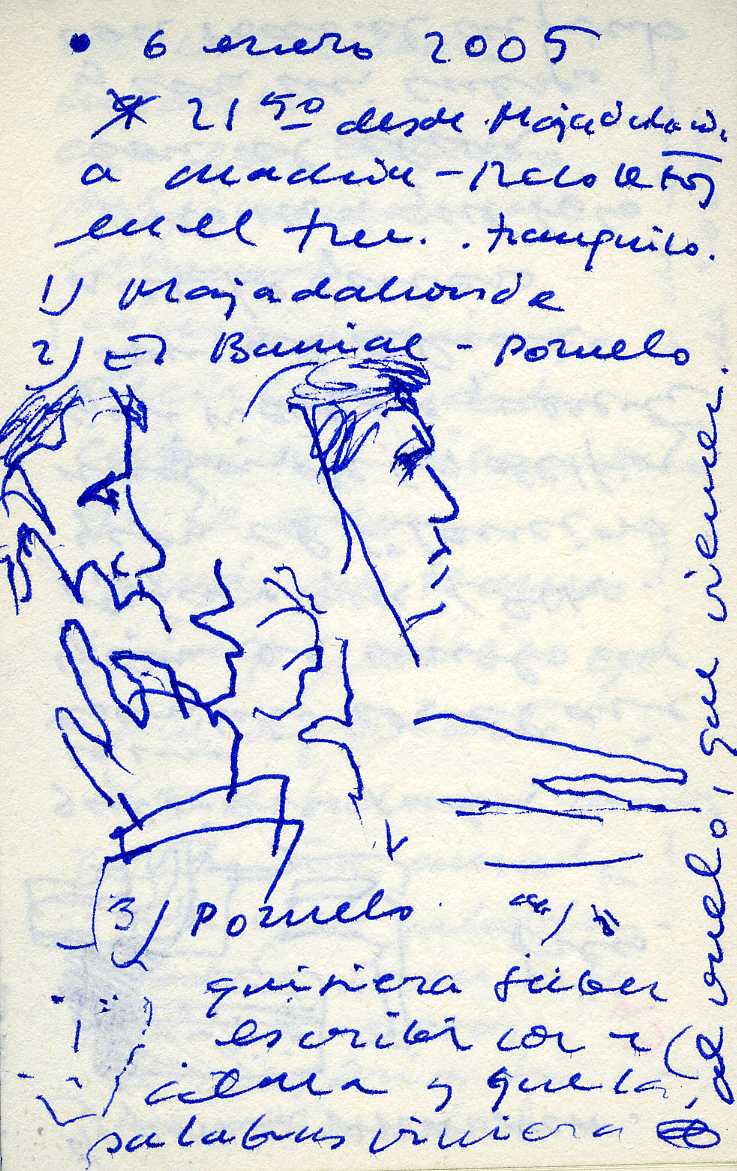 • 6 enero 2005
* 21 50 desde Majadahonda
a Madrid - Recoletos
en el tren.. tranquilo.
1) Majadahonda
2) El Barrial - Pozuelo
3) Pozuelo.
quisiera saber
escribir con
y que la
palabras viniera
al vuelo, que vienen.